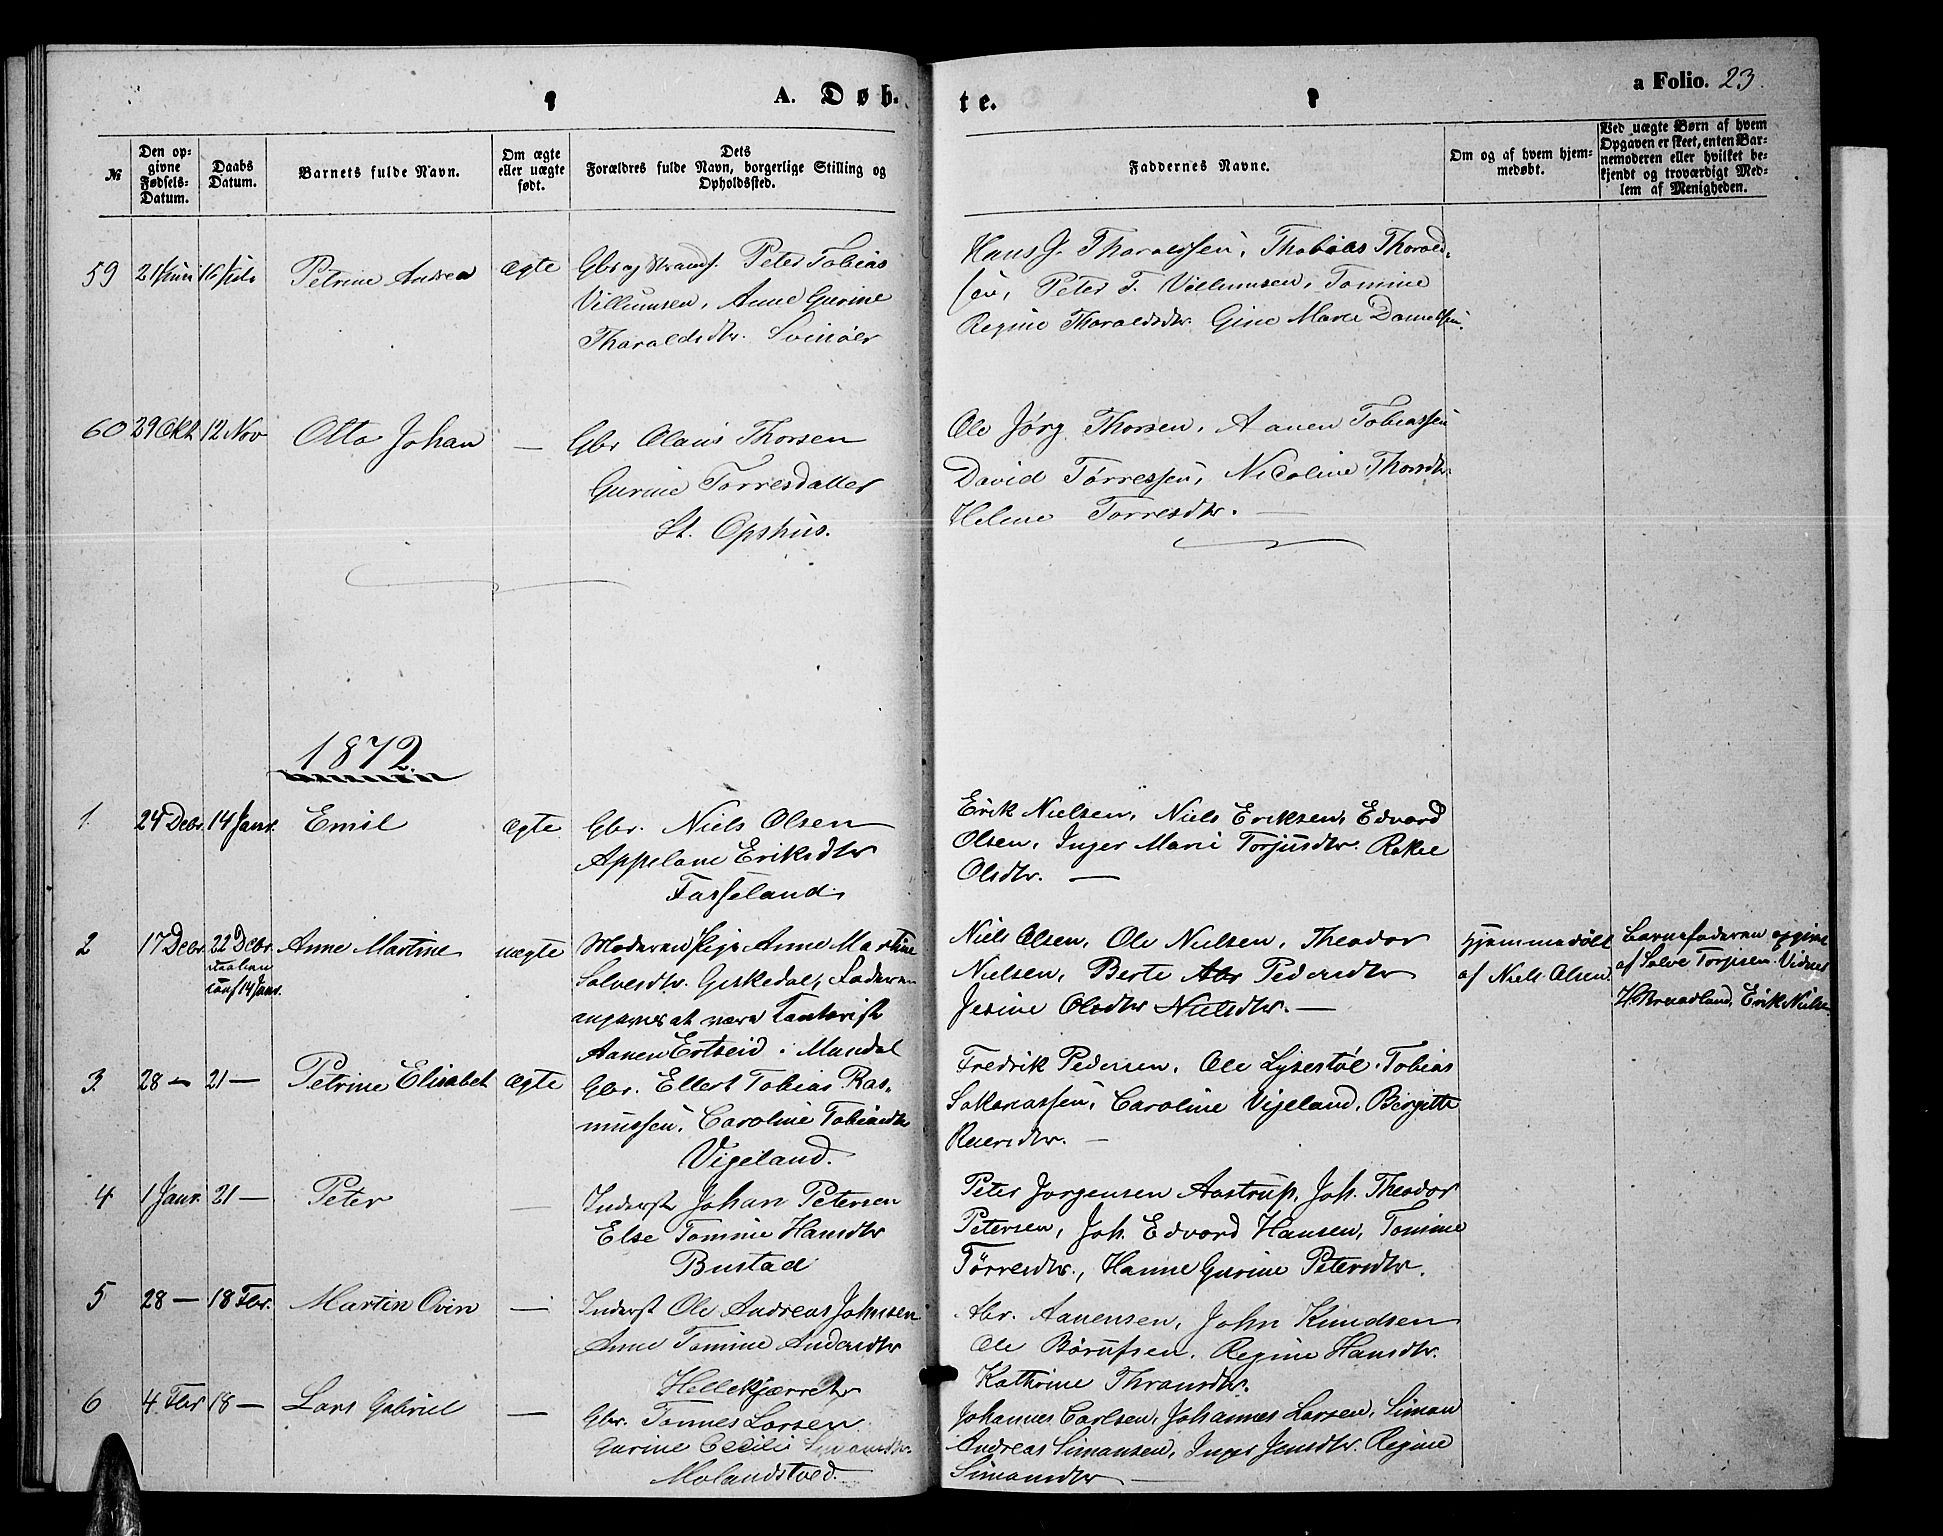 A. Døb.
te.
a Folio. 23.
№
Den opgivne Fødsels-Datum.
Daabs Datum.
Barnets fulde Navn.
Om ægte eller uægte født.
Dets
Forældres fulde Navn, borgerlige Stilling og
Opholdssted.
Faddernes Navne.
Om og af hvem hjemmedøbt.
Ved uægte Børn af hvem
Opgaven er skeet, enten Bar-
nemoderen eller hvilket be-
kjendt og troværdigt Med-
lem af Menigheden.
59 21 Juni 16 Juli Petrine Andrea ægte Gbr og Strands. Peter Tobias
Villumsen, Anne Gurine
Tharaldsdtr. Svinøer
Hans J. Tharaldsen, Thobias Tharald-
sen, Peter T. Villumsen, Tomine
Regine Tharaldsdtr. Gine Marie Danielsen.
60 29 Okt. 12 Nov Otto Johan — Gbr Olaus Thorsen
Gurine Torresdatter
St. Opshus.
Ole Jørg. Thorsen, Aanen Tobiassen
David Tørressen, Nicoline Thorsdtr.
Helene Torresdtr. —
1872.
1. 24 Debr. 14 Janr. Emil ægte Gbr. Niels Olsen
Appelane Eriksdtr
Fasseland.
Erik Nielsen, Niels Eriksen, Edvard
Olsen, Inger Marie Torjusdtr. Rakel
Olsdtr. —
2 17 Debr. 22 Debr. Anne Martine uægte Moderen Pige Anne Martine
14 Janr.
Salvesdtr. Giskedal, Faderen
angives at være
Aanen Ertseid i Mandal
Niels Olsen, Ole Nielsen, Theodor
Nielsen, Berte Pedersdtr
Jesine Olsdtr Nielsdtr. —
Hjemmedøbt
af Niels Olsen.
Barnefaderen opgivet
af Salve Torjusen. Vidner
H. Breadland, Erik Nielsen
3. 28 — 21 — Petrine Elisabet ægte Gbr. Ellert Tobias Ras-
mussen, Caroline Tobiasdtr
Vigeland.
Fredrik Pedersen, Ole Lysestøl, Tobias
Sakariassen, Caroline Vigeland, Birgitte
4 1 Janr. 21 — Peter — Inderst Johan Petersen
Else Tomine Hansdtr
Bustad
Peter Jorgensen Aastrup, Joh. Theodor
Petersen, Joh. Edvard Hansen, Tomine
Tørresdtr., Hanne Gurine Petersdtr.
5 28 — 18 Fbr. Martin Ovin — Inderst Ole Andreas Johnsen
Anne Tomine Andersdtr
Hellekjærret
Abr. Aanensen, John Knudsen
Ole Børufsen, Regine Hansdtr.
Kathrine Thransdtr.
6 4 Fbr 18 — Lars Gabriel — Gbr. Tonnes Larsen
Gurine Cecilie Simonsdtr.
Molandstved
Johannes Carlsen, Johannes Larsen, Simon
Andreas Simonsen, Inger Jensdtr. Regine
Simonsdtr —